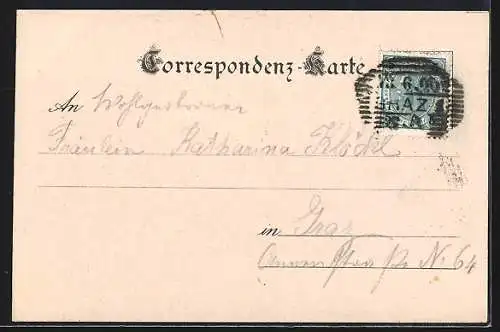 Correspondenz-Karte
6.00
RAZ
An Wohlgeborenen
Fräulein Katharina Klöckl
in Graz
Annenstraße No 64